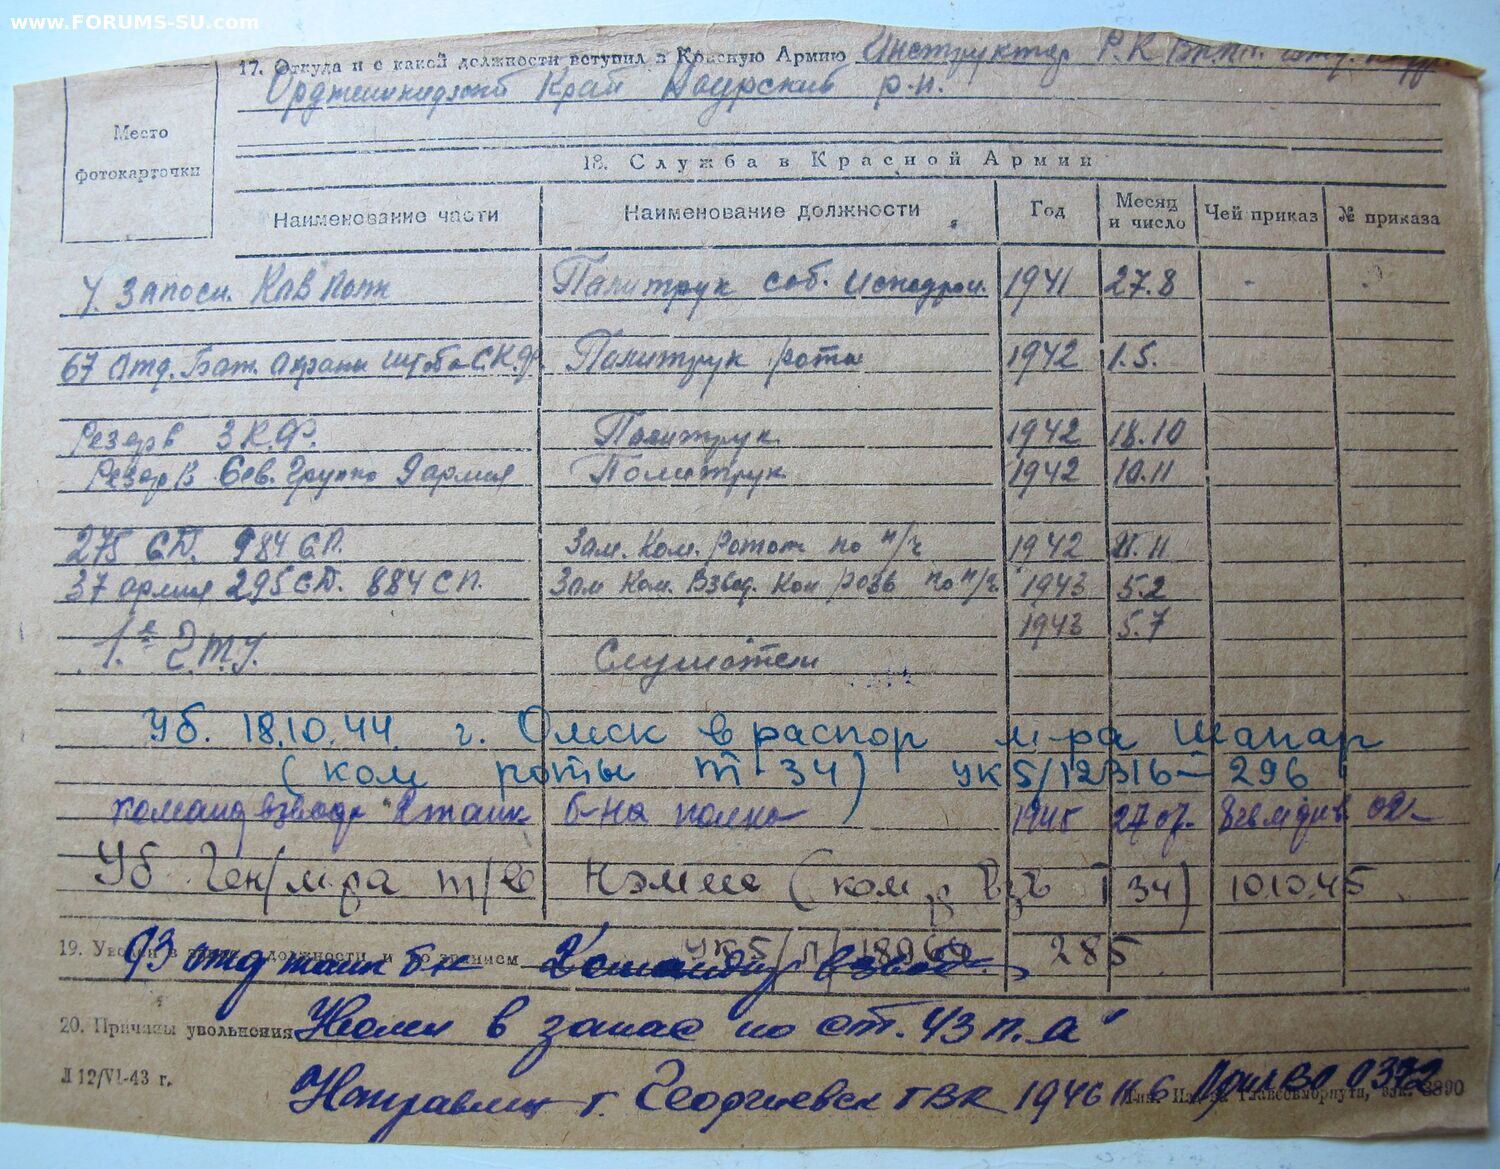 www.FORUMS-SU.com
17. Откуда и с какой должности вступил в Красную Армию Инструктор Р.К
Орджоникидзевск Край Наурский р.н.
Место
фотокарточки
18. Служба в Красной Армии
Наименование части Наименование должности Год Месяц и число Чей приказ № приказа
7. Запасн. Кав Полк Политрук соб. 1941 27.8
67 Отд. Бат. Охраны Штаба С.К.Ф. Политрук роты 1942 1.5.
Резерв З К.Ф. Политрук 1942 18.10
Резерв Сев. Группы 9 армия Политрук 1942 10.11
275 С.Д. 984 С.П. Зам. Ком. Роты по п/ч 1942 11
37 армия 295 С.Д. 884 С П. Зам Ком. Взвод. Кон разв по п/ч 1943 5.2
1943 5.7
1.е Г.Т.У. Слушатель
Уб. 18.10.44. г. Омск в распор м-ра Шапар
(ком роты Т 34) УК5/12316- 296
команд взвода танк б-на полка 1945 27 07.
Уб Ген/м-ра т/в (ком Вз Т 34) 10.10.45
19. должности и званием УК5/П/ 285
93 отд танк бк Командир взвод.
20. Причины увольнения Уволен в запас по ст. 43 п. а"
Л 12/VI-43 г. Направлен г. Георгиевск ГВК 1946